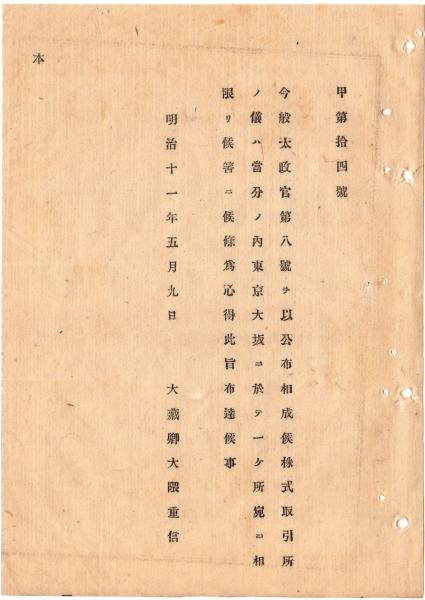 甲第拾四號
今般太政官第八號ヲ以公布相成候株式取引所
ノ儀ハ當分ノ內東京大坂ニ於テ一ケ所宛ニ相
限リ候筈ニ候條爲心得此旨布達候事
明治十一年五月九日　大藏卿大隈重信
本